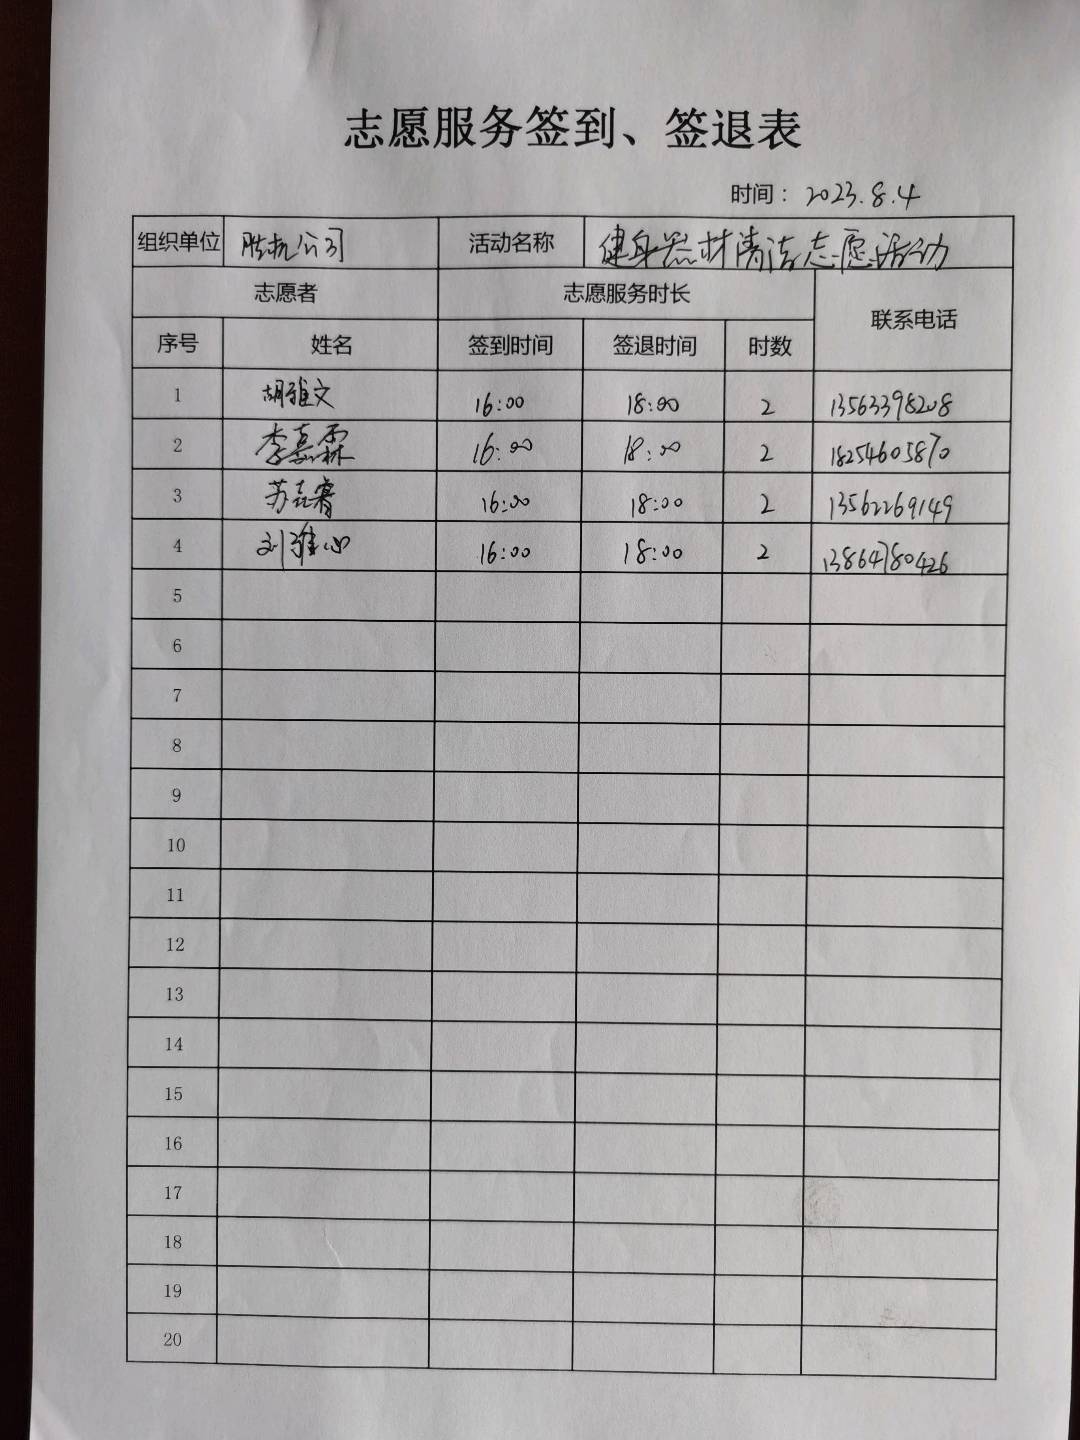 志愿服务签到、签退表
时间：2023.8.4
组织单位 胜机公司 活动名称 健身器材清洁志愿活动
志愿者 志愿服务时长 联系电话
序号 姓名 签到时间 签退时间 时数
1 胡雅文 16:00 18:00 2 13563398208
2 李嘉霖 16:00 18:00 2 18254605870
3 苏 睿 16:00 18:00 2 13562269149
4 刘雅心 16:00 18:00 2 13864780426
5
6
7
8
9
10
11
12
13
14
15
16
17
18
19
20